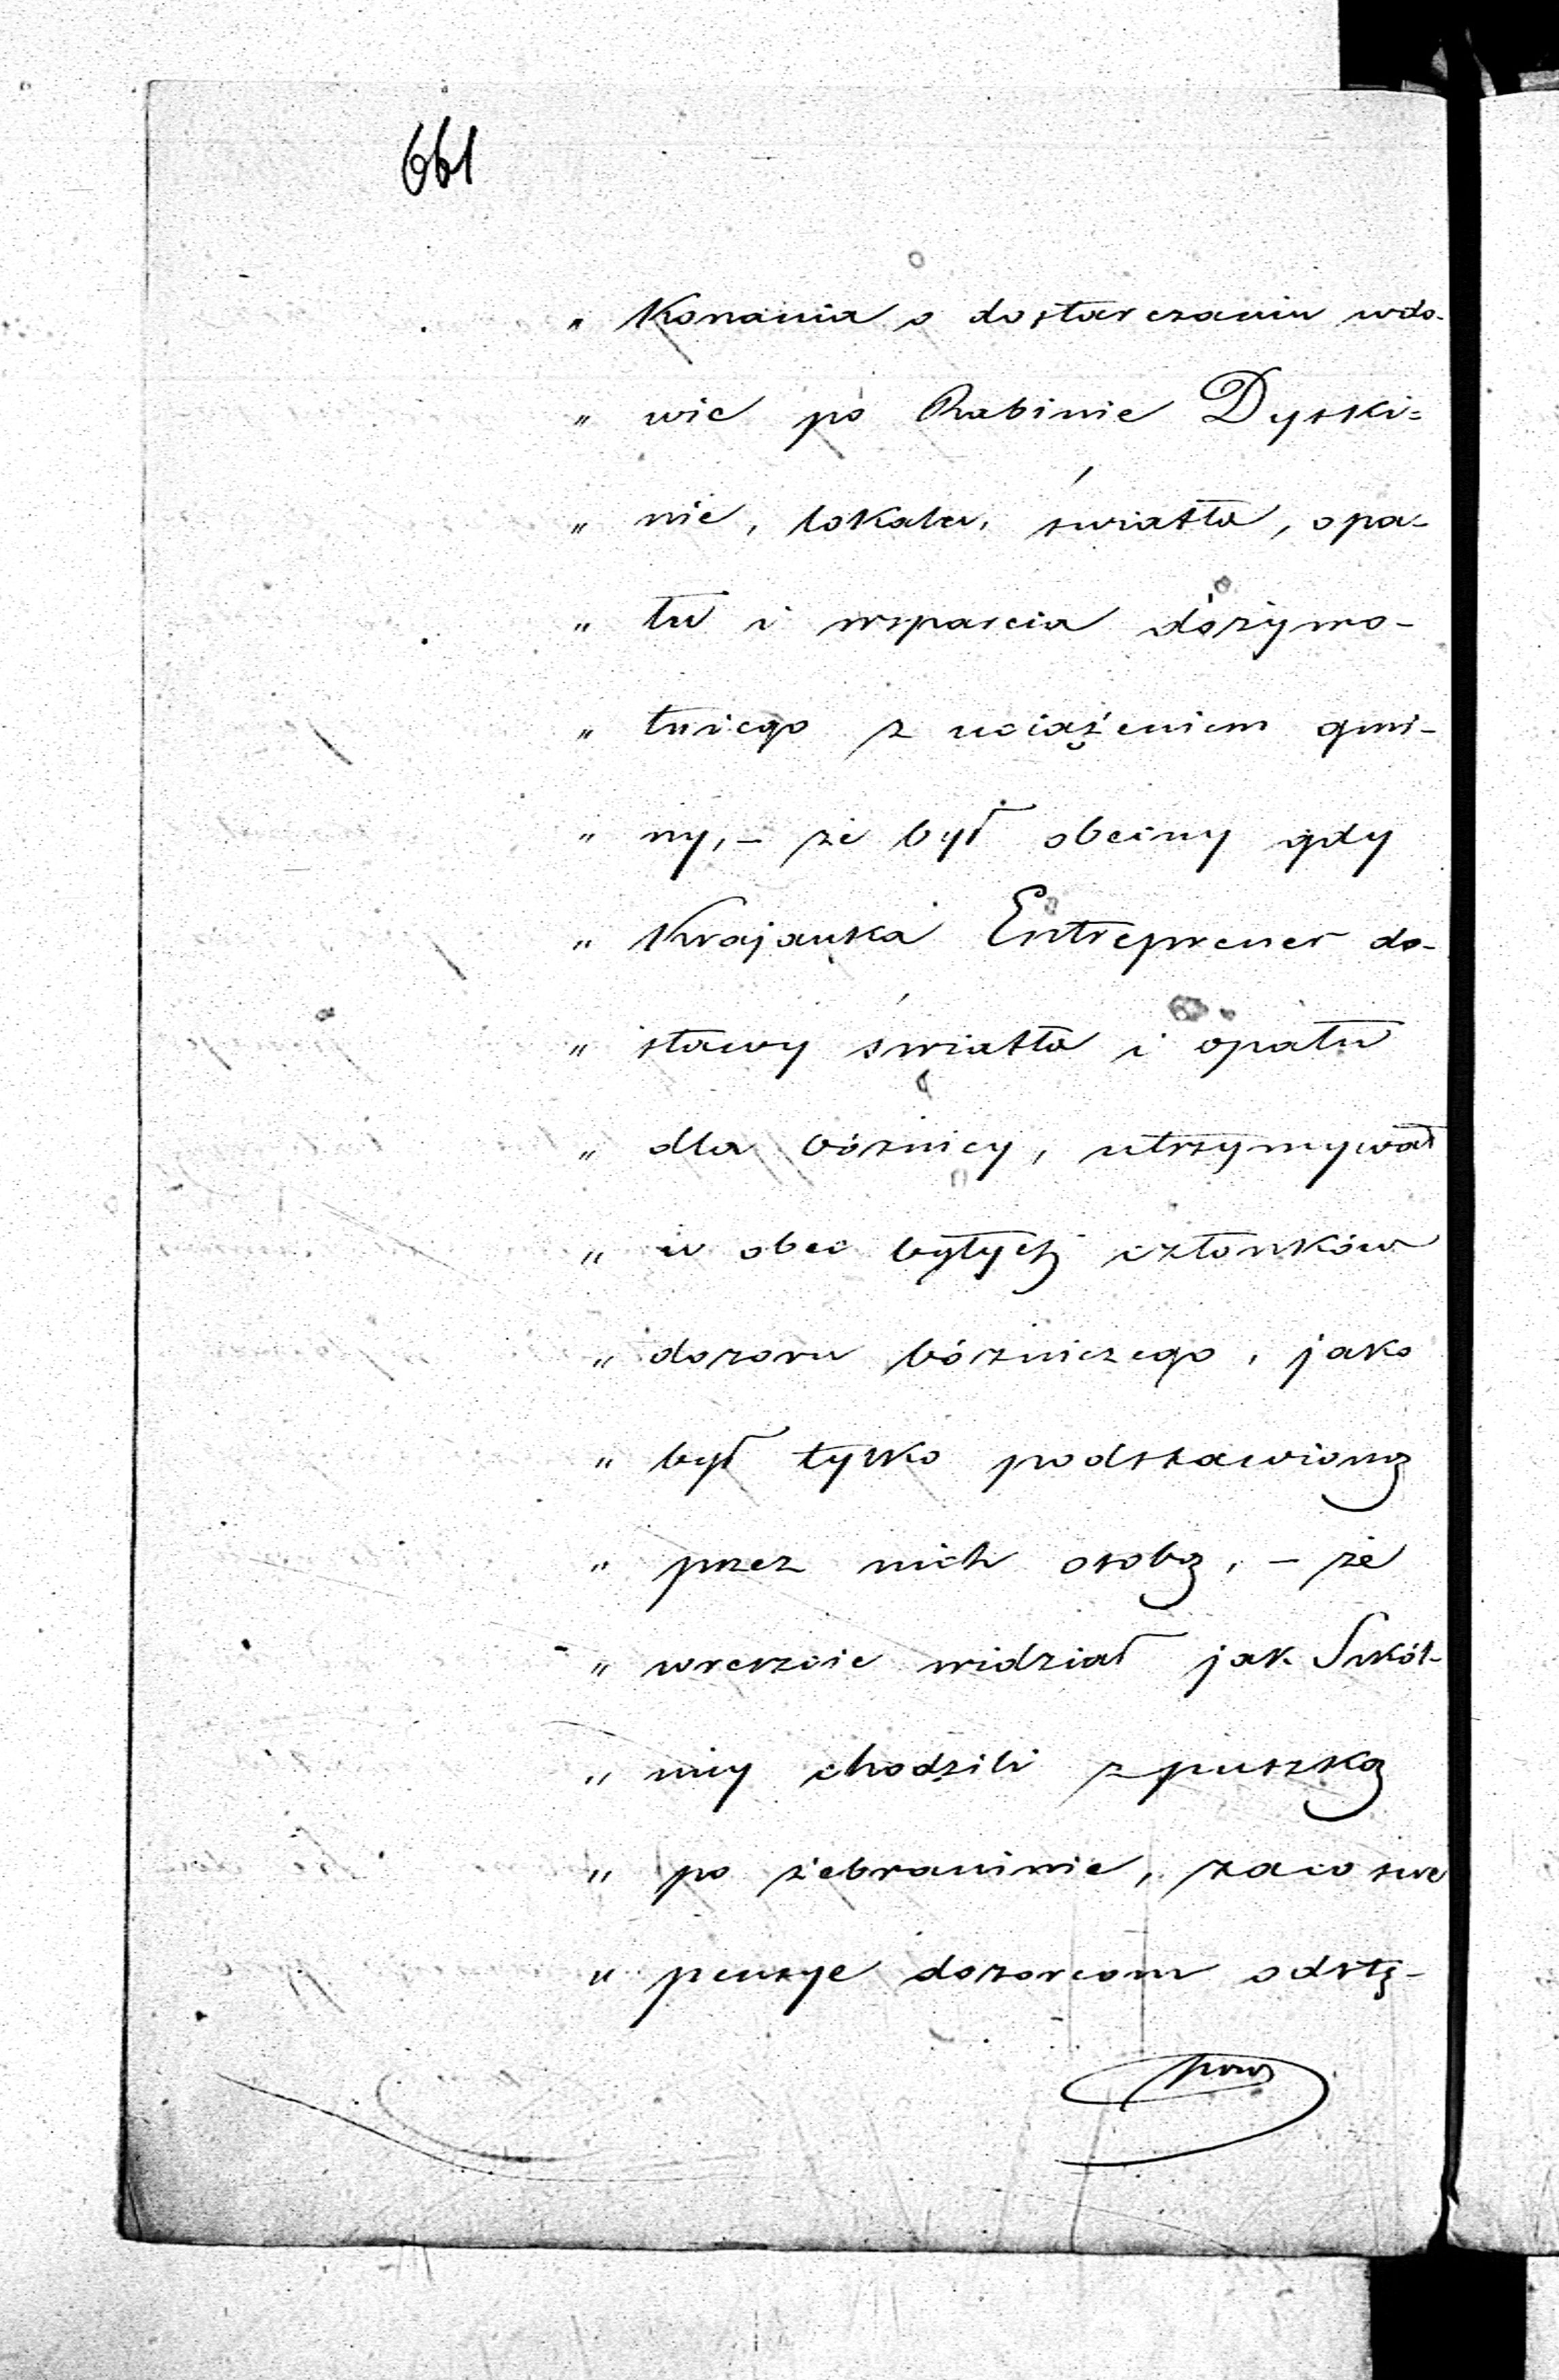 661
" konania o dostarczaniu wdo-
" wie po Rabinie Dyski=
" nie, lokalu, światła, opa-
" łu i wsparcia dożywo-
" tniego z uciążeniem gmi-
" ny, - że był obecny gdy
" Krajanka Entreprener do-
" stawy światła i opału
" dla bóżnicy, utrzymywał
" w obec byłych członków
" dozoru bóżniczego, jako
" był tylko podstawioną
" przez nich osobą, - że
" wreszcie widział jak Szkół-
" nicy chodzili z puszką
" po żebraninie, zaco swe
" pensye dozorcom odstę-
pują